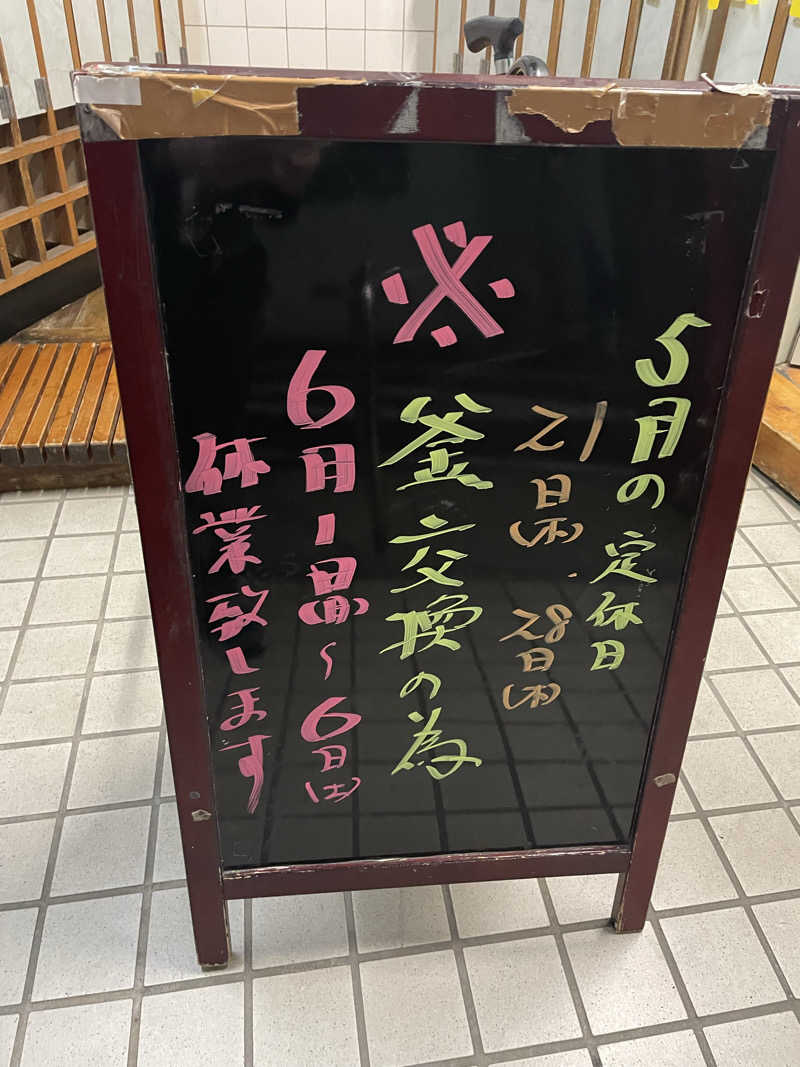 5月の定休日
21日(木)・28日(木)
※
釜交換の為
6月1日(月)〜6日(土)
休業致します